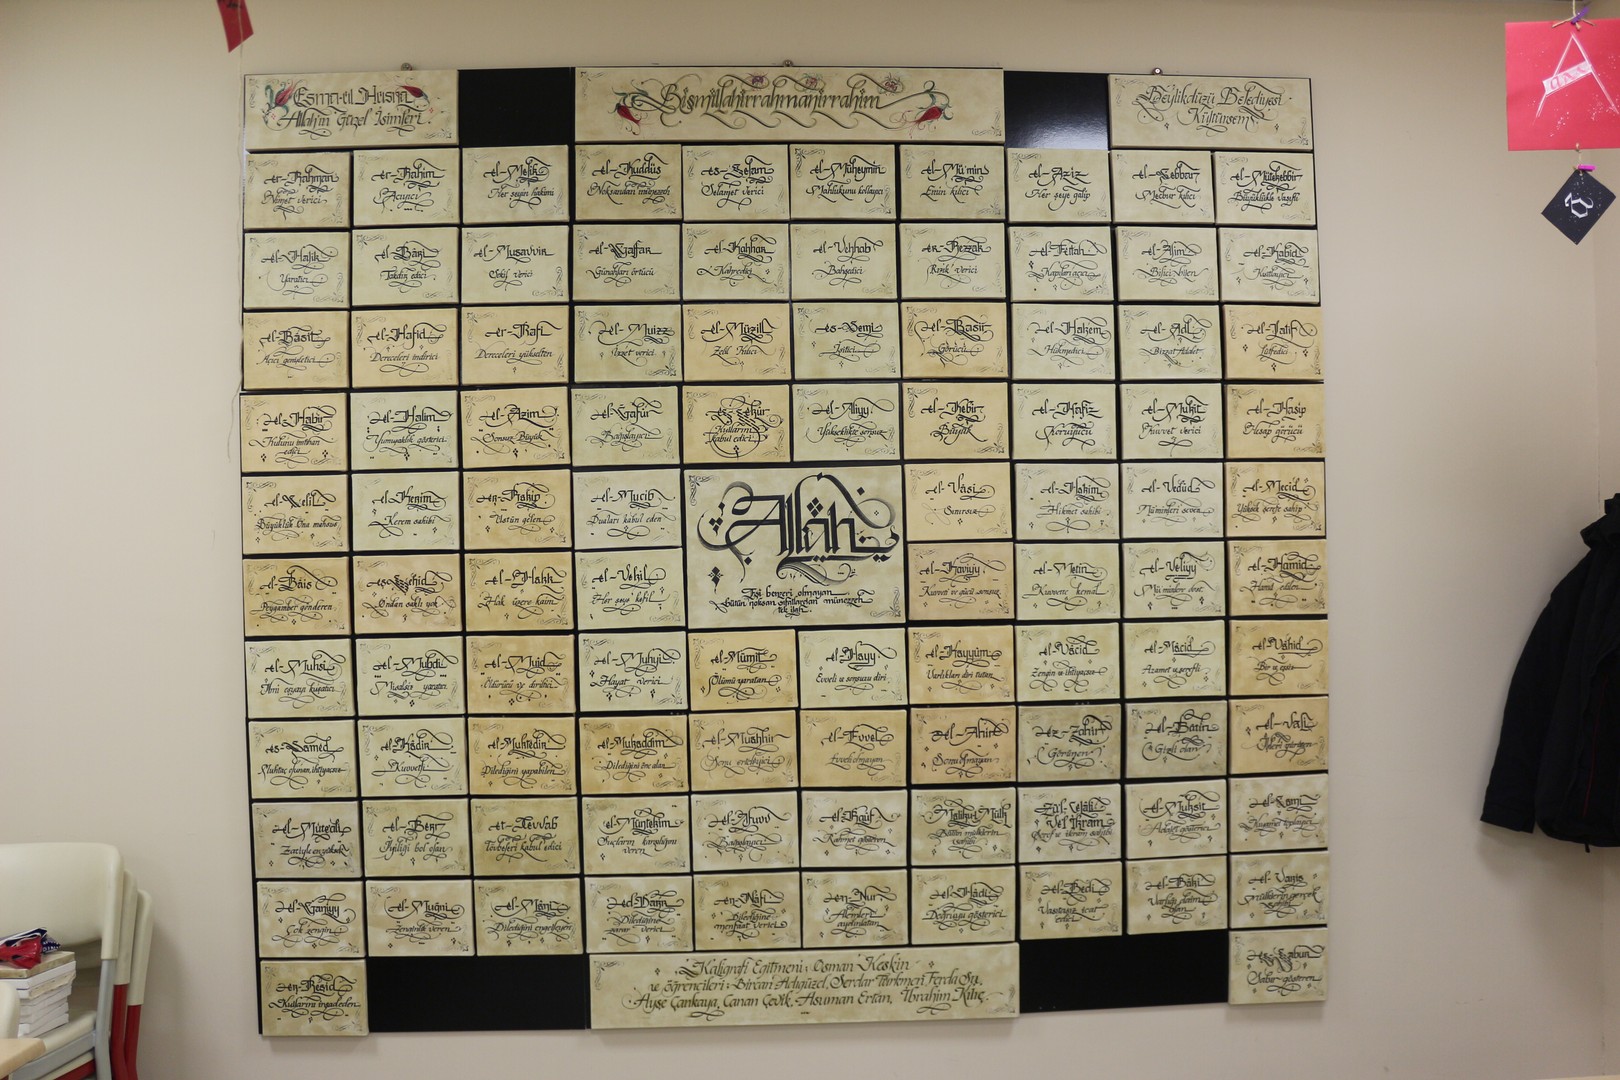 Esma-ül Hüsna
Allah'ın Güzel İsimleri
Bismillahirrahmanirrahim
Beylikdüzü Belediyesi
Kültürsem
er-Rahman
Nimet verici
er-Rahim
Acıyıcı
el-Melik
Her şeyin hakimi
el-Kuddüs
Noksandan münezzeh
es-Selam
Selamet verici
el-Müheymin
Mahlukunu kollayıcı
el-Mü'min
Emin kılıcı
el-Aziz
Her şeye galip
el-Cebbar
Mecbur kılıcı
el-Mütekebbir
Büyüklükte vasıflı
el-Halik
Yaratıcı
el-Bâri
Takdir edici
el-Musavvir
Şekil verici
el-Gaffar
Günahları örtücü
el-Kahhar
Kahredici
el-Vehhab
Bahşedici
er-Rezzak
Rızık verici
el-Fettah
Kapıları açıcı
el-Alim
Bilici
el-Kabid
el-Bâsit
Açıcı genişletici
el-Hafid
Dereceleri indirici
er-Rafi
Dereceleri yükselten
el-Muizz
İzzet verici
el-Müzill
Zelil kılıcı
es-Semi
İşitici
el-Basir
Görücü
el-Hakem
Hükmedici
el-Adl
Bizzat Adalet
el-Latif
Lütfedici
el-Habir
Kulunu imtihan
edici
el-Halim
Yumuşaklık gösterici
el-Azim
Sonsuz Büyük
el-Gafur
Bağışlayıcı
eş-Şekür
Kullarını
kabul edici
el-Aliyy
Yükseklikte sonsuz
el-Kebir
Büyük
el-Hafiz
Koruyucu
el-Mukit
Kuvvet verici
el-Hasip
Hesap görücü
el-Celil
Büyüklük Ona mahsus
el-Kerim
Kerem sahibi
er-Rakip
Üstün gelen
el-Mucib
Duaları kabul eden
Allah
Eşi benzeri olmayan
Bütün noksan sıfatlardan münezzeh
tek ilah
el-Vasi
Sınırsız
el-Hakim
Hikmet sahibi
el-Vedud
Müminleri seven
el-Mecid
Yüksek şerefe sahip
el-Bais
Peygamber gönderen
eş-Şehid
Ondan saklı yok
el-Hakk
Hak üzere kaim
el-Vekil
Her şeye kefil
el-Kaviyy
Kuvveti ve gücü sonsuz
el-Metin
Kuvvette kemal
el-Veliyy
Müminlere dost
el-Hamid
Hamd edilen
el-Muhsi
el-Mubdi
el-Muid
Öldürücü ve diriltici
el-Muhyi
Hayat verici
el-Mümit
Ölümü yaratan
el-Hayy
Evveli ve sonsuzu diri
el-Hayyüm
Varlıkları diri tutan
el-Vâcid
el-Mâcid
Azamet ve şerefli
el-Vâhid
es-Samed
el-Kâdir
Kuvvetli
el-Muktedir
Dilediğini yapabilen
el-Mukaddim
Dilediğini öne alan
el-Muahhir
el-Evvel
Evveli olmayan
el-Ahir
Sonu olmayan
ez-Zahir
Görünen
el-Batın
Gizli olan
el-Vali
el-Müteali
el-Berr
İyiliği bol olan
et-Tevvab
Tövbeleri kabul edici
el-Müntekim
Suçların karşılığını
veren
el-Afuvv
Bağışlayıcı
el-Rauf
Rahmet gösteren
Malikü-l Mülk
Bütün mülklerin
sahibi
Zül-Celali
Vel İkram
Şeref ve ikram sahibi
el-Muksit
Adalet gösterici
el-Cami
el-Ganiyy
Çok zengin
el-Muğni
Zenginlik veren
el-Mâni
Dilediğini engelleyen
ed-Dârr
Dilediğine
zarar verici
en-Nâfi
Dilediğine
menfaat verici
en-Nur
Alemleri
aydınlatan
el-Hâdi
Doğruyu gösterici
el-Bedi
el-Bâki
Varlığı daim
olan
el-Varis
er-Reşid
Kullarını irşad eden
es-Sabur
Sabır gösteren
Kaligrafi Eğitmeni: Osman Keskin
ve öğrencileri: Bircan Adıgüzel, Serdar Türkmen, Ferda
Ayşe Çankaya, Canan Çevik, Asuman Ertan, İbrahim Kılıç